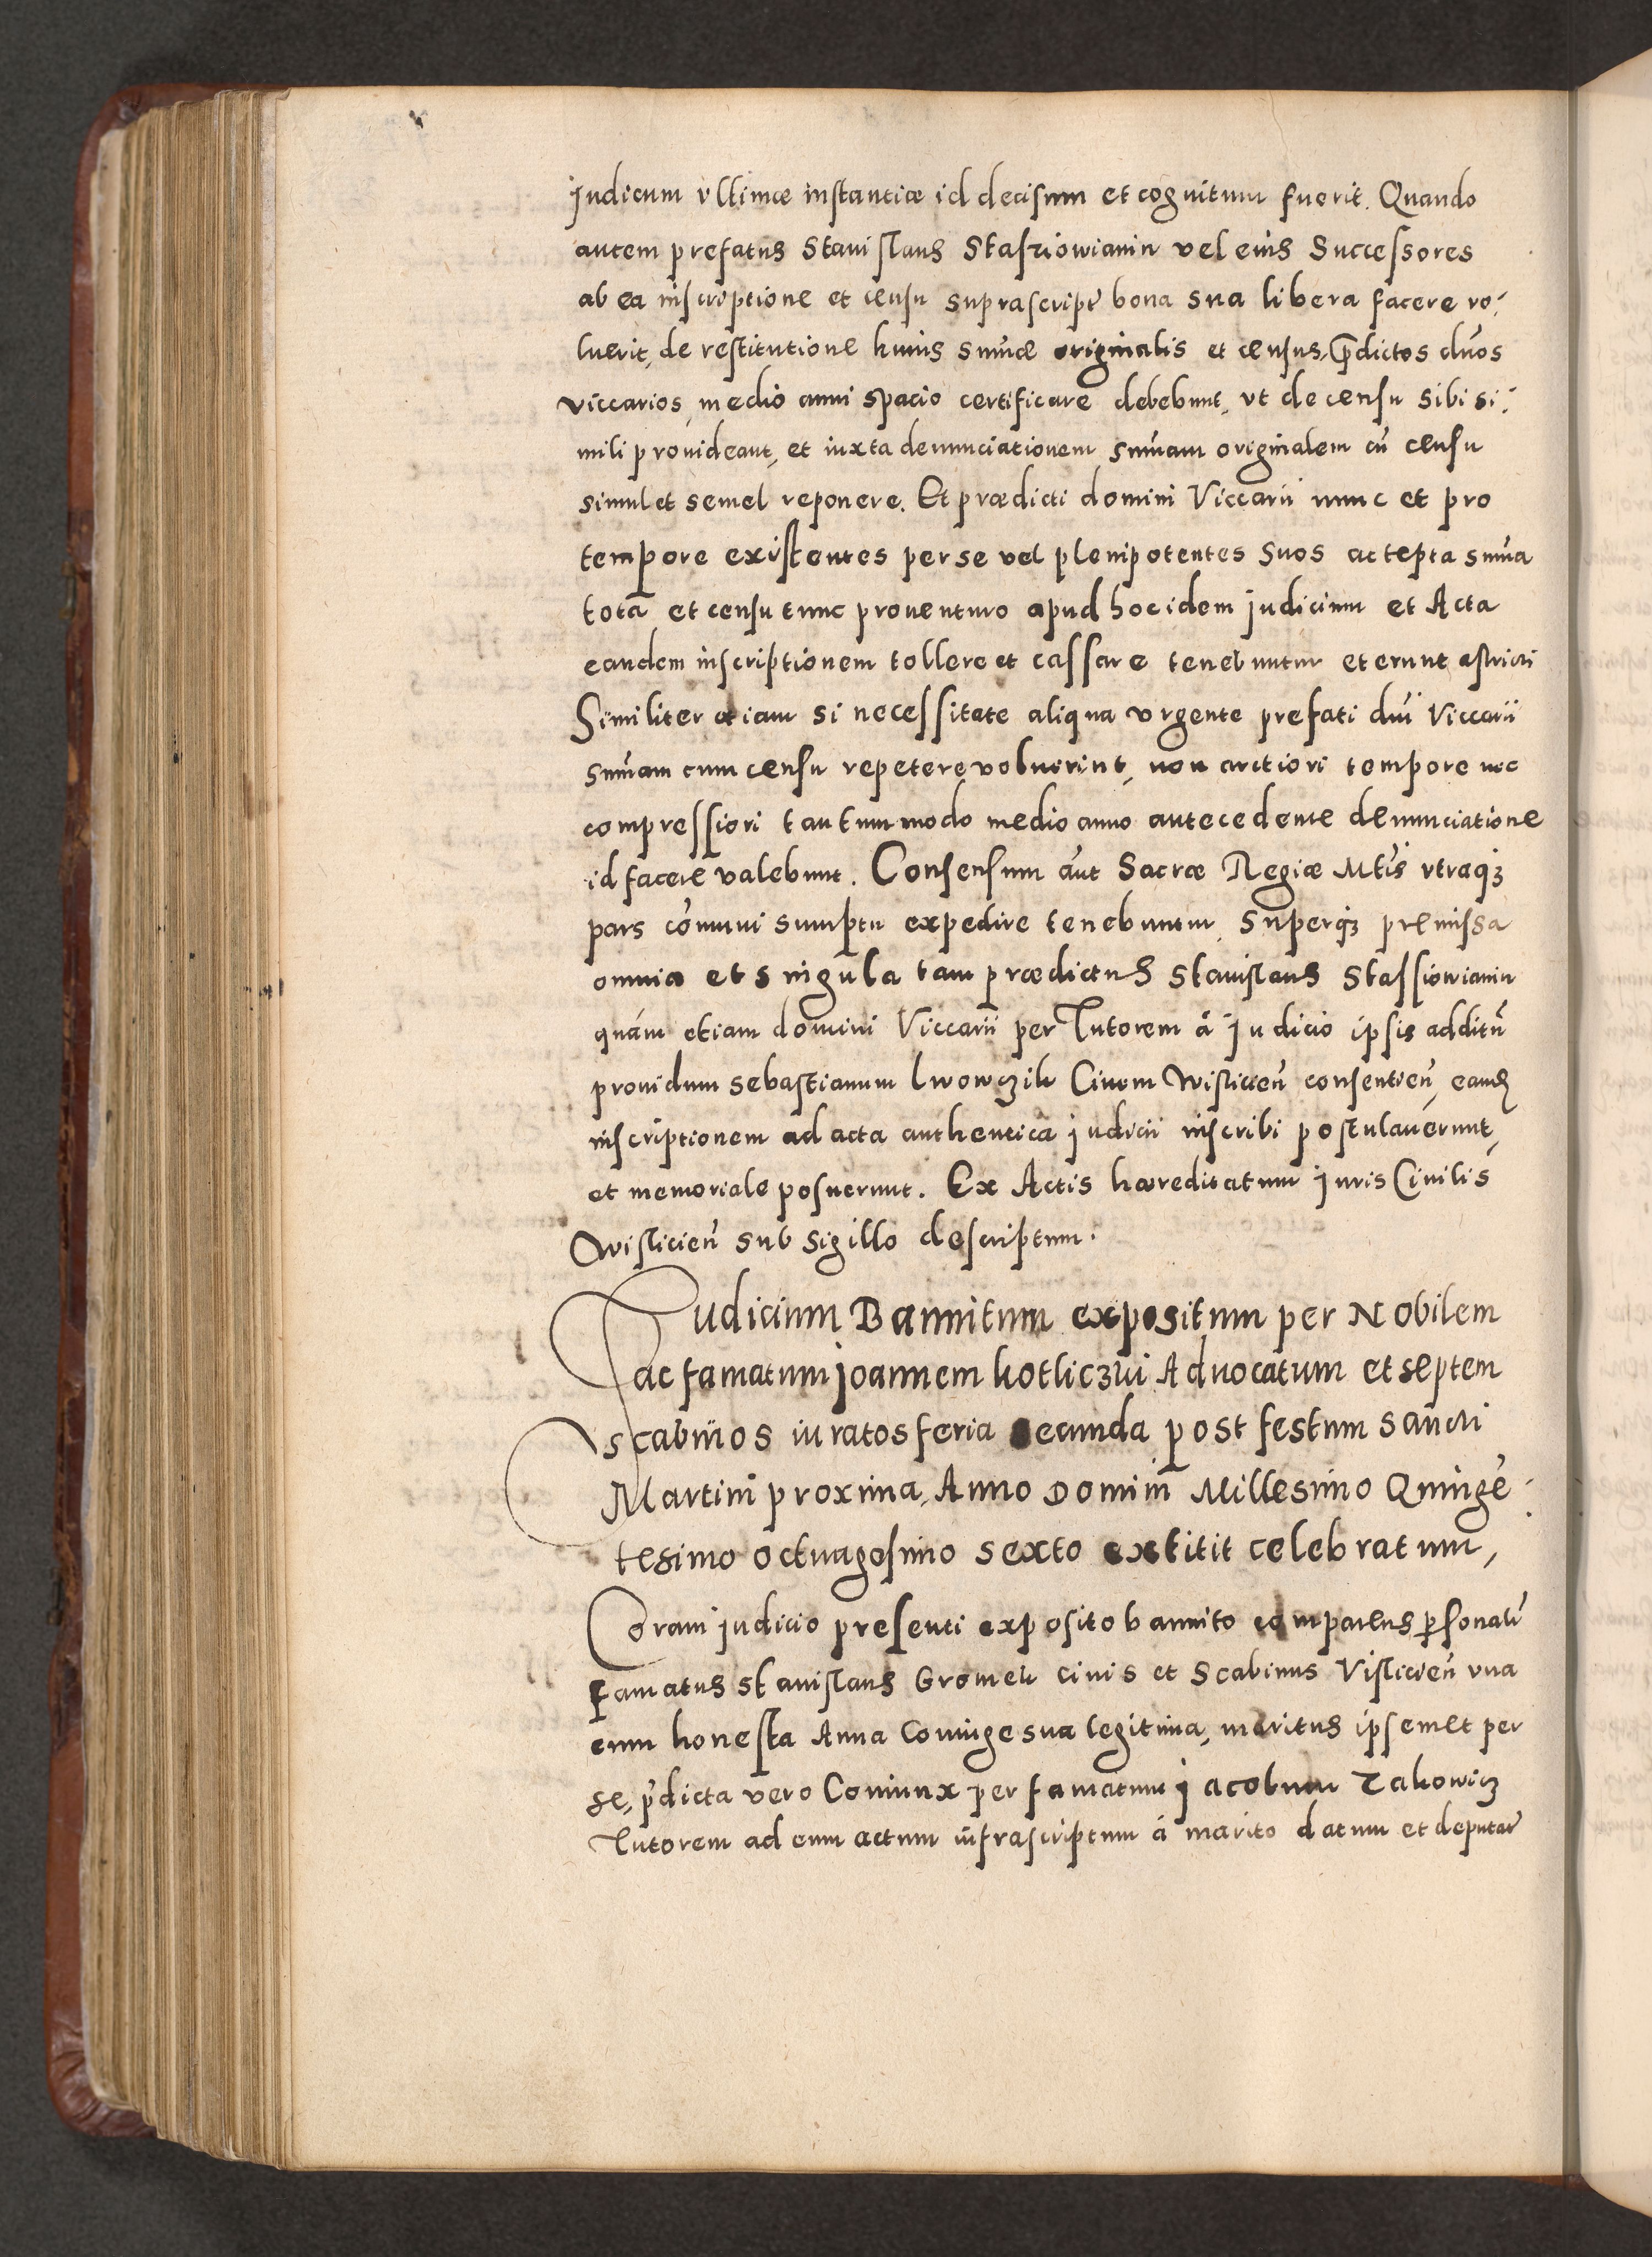 Judicum vltimæ instantiæ id decisum et cognitum fuerit. Quando
autem prefatus Stanislaus Stasziowianin vel eius Successores
ab ea inscriptione et censu suprascript̃ bona sua libera facere vo¬
luerit, de restitutione huius sum̃æ originalis et census, p̃dictos dños
viccarios, medio anni spacio certificare debebunt, vt de censu sibi si¬
mili prouideant, et iuxta denunciationem sum̃am originalem cũ censu
simul et semel reponere. Et prædicti domini Viccarii nunc et pro
tempore existentes per se vel plenipotentes suos accepta sum̃a
totã et censu tunc prouenturo apud hoc idem judicium et Acta
eandem inscriptionem tollere et cassare tenebuntur et erunt astricti
Similiter etiam si necessitate aliqua vrgente prefati dñi Viccarii
sum̃am cum censu repetere voluerint, non arctiori tempore nec
compressiori tantummodo medio anno antecedente denunciatione
id facere valebunt. Consensum aũt Sacræ Regiæ Mtis̃ vtraqȝ
pars com̃uni sumptu expedire tenebuntur, superqȝ premissa
omnia et singula tam prædictus Stanislaus Stassiowianin
quám etiam domini Viccarii per Tutorem á judicio ipsis additũ
prouidum sebastianum Lwowczik Ciuem Wislicieñ consentieñ, eandẽ
inscriptionem ad acta authentica judicii inscribi postulauerunt,
et memoriale posuerunt. Ex Actis hæreditatum juris Ciuilis
Wislicieñ sub sigillo descriptum.
Judicium Bannitum expositum per Nobilem
ac famatum joannem kotliczki Aduocatum et septem
scabinos iuratos feria secunda post festum sancti
Martini proxima, Anno Domini Millesimo Quinge¬
tesimo octuagesimo sexto extitit celebratum,
Coram judicio presenti exposito bannito comparens p̱sonalr̃
famatus stanislaus Gromek ciuis et scabinus Vislicieñ vna
cum honesta Anna Coniuge sua legitima, maritus ipsemet per
se, p̃dicta vero Coniunx per famatum jacobum Zakowicz
Tutorem ad eum actum infrascriptum á marito datum et deputat̃